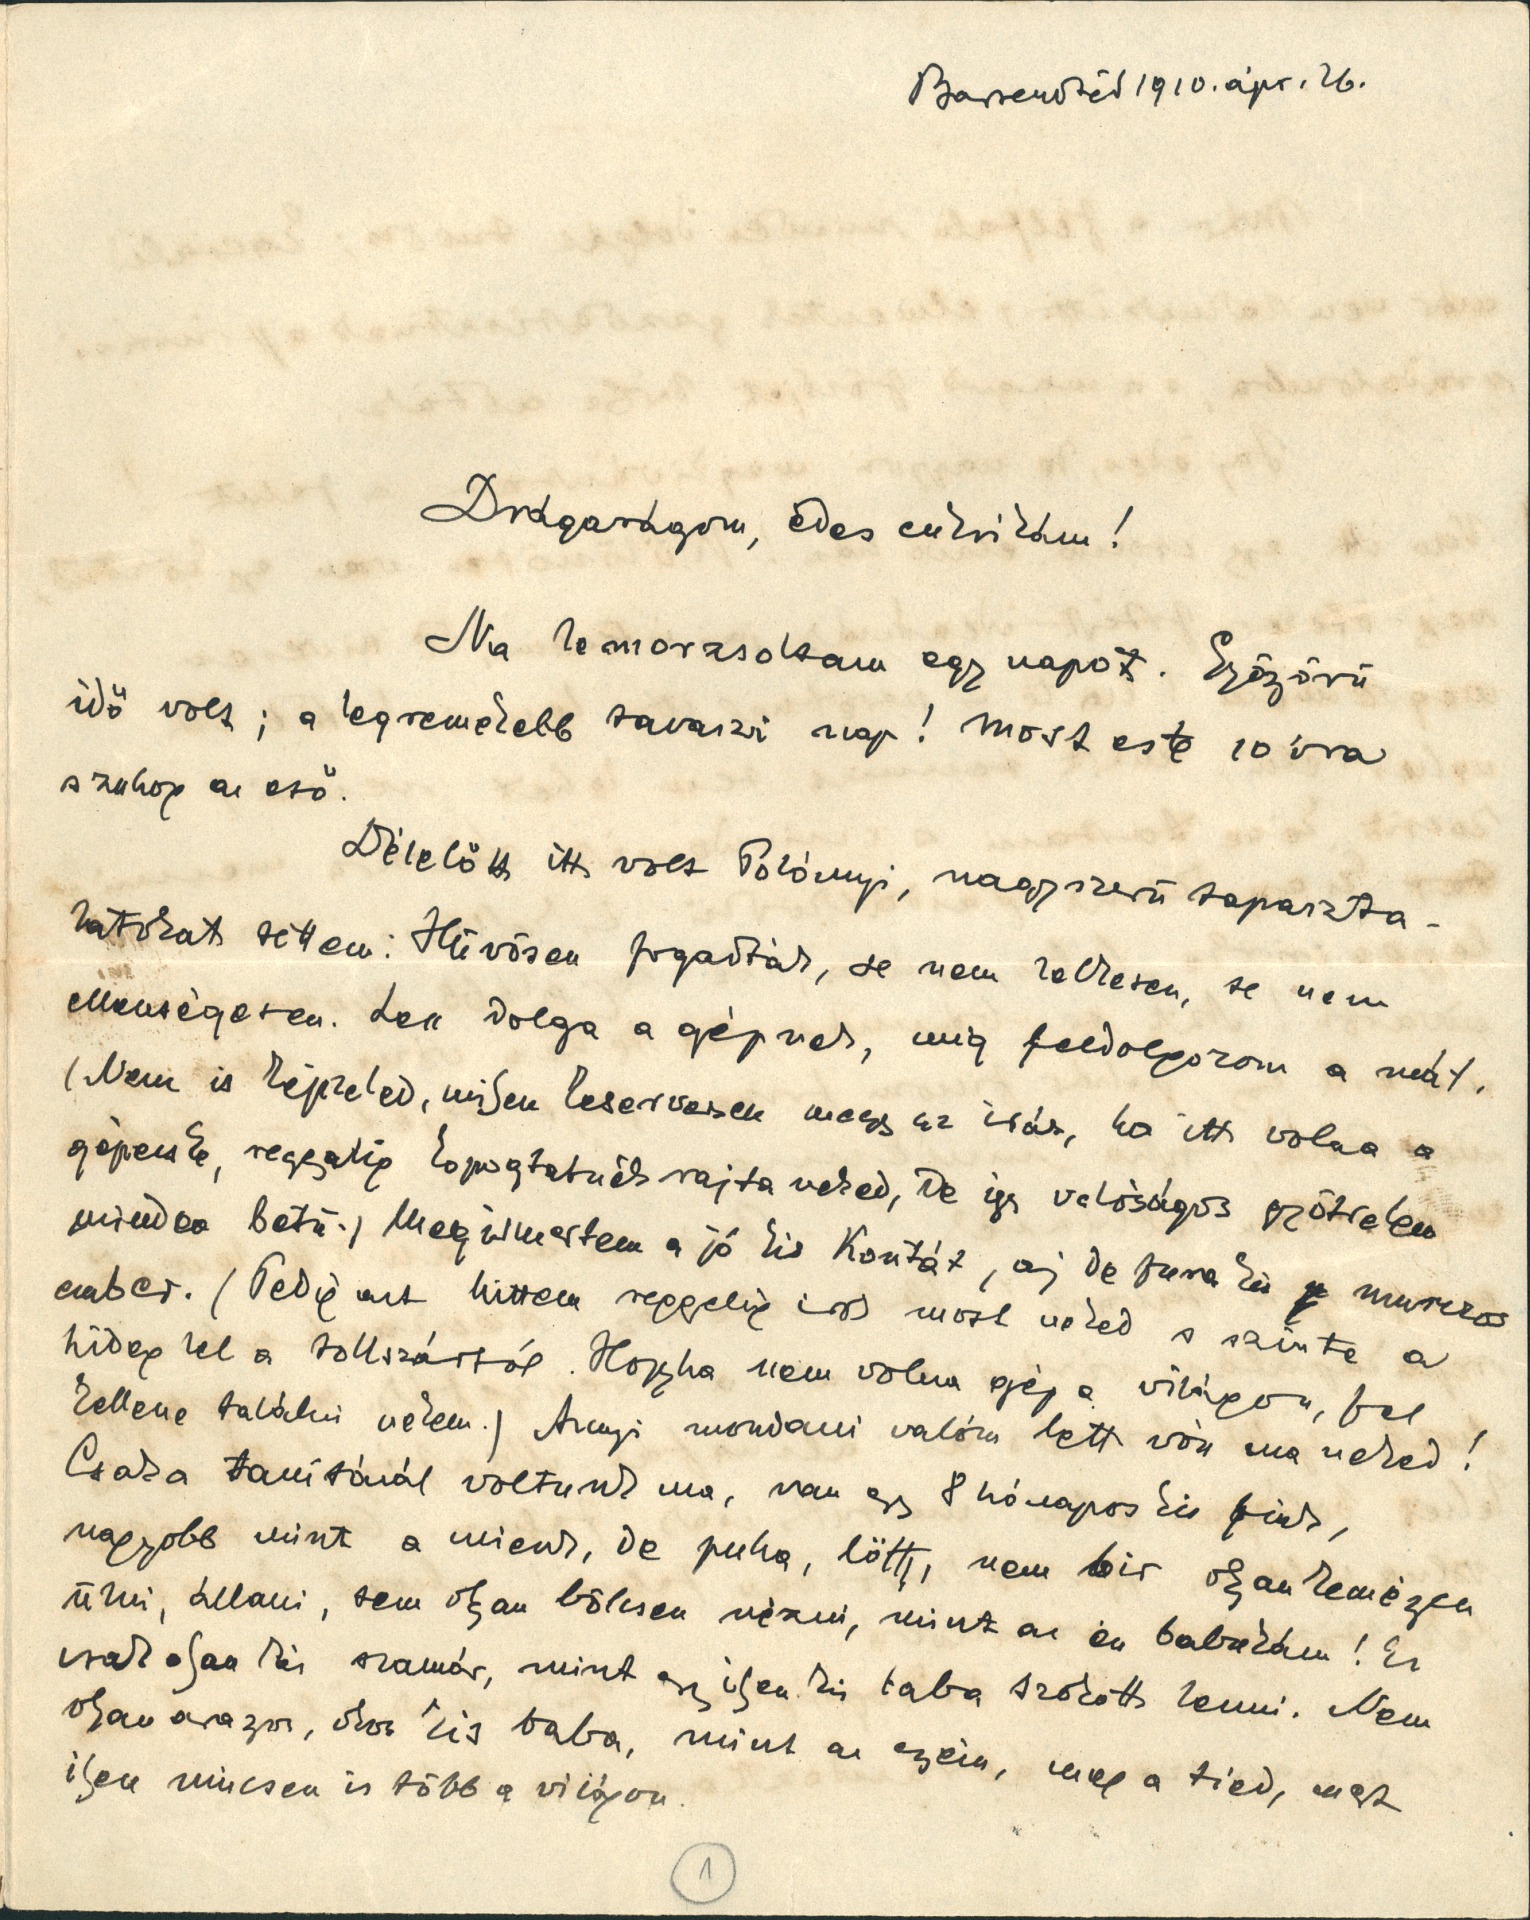 Barsendréd 1910. ápr. 26.
Drágaságom, édes cukikám!
Na lemorzsoltam egy napot. Gyönyörü
idö volt; a legremekebb tavaszi nap! Most este 10 óra
s zuhog az esö.
Délelött itt volt Polónyi, nagyszerü tapaszta-
latokat tettem: Hüvösen fogadták, se nem lelkesen, se nem
ellenségesen. Lesz dolga a gépnek, mig feldolgozom a mát.
(Nem is képzeled, milyen keservesen megy az irás, ha itt volna a
gépecske, reggelig kopogtatnék rajta neked, de igy valóságos gyötrelem
minden betü.) Megismertem a jó kis Kontát, aj de fura kis murczos
ember. (Pedig azt hittem reggelig irok most neked s szinte a
hideg lel a tollszártól. Hogyha nem volna gép a világon, fel
kellene találni nekem.) Annyi mondani valóm lett vón ma neked!
Csaka tanitónál voltunk ma, van egy 8 hónapos kis fiuk,
nagyobb mint a mienk, de puha, lötty, nem bir olyan keményen
ülni, állani, sem olyan bölcsen nézni, mint az én babukám! Ez
csak olyan kis szamár, mint egy ilyen kis baba szokott lenni. Nem
olyan aranyos, okos kis baba, mint az enyém, meg a tied, mert
ilyen nincsen is több a világon.
1